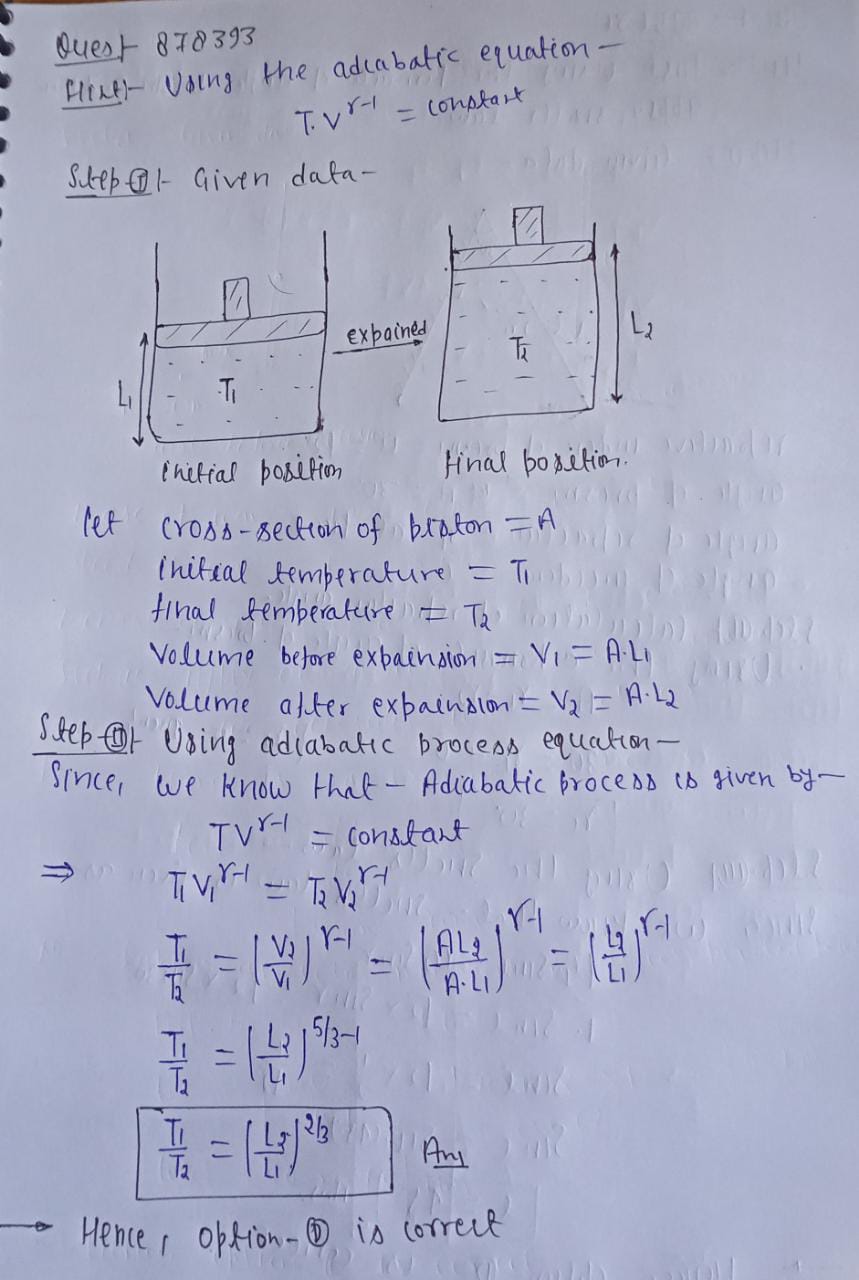 Quest 878393
Hint:- Using the adiabatic equation -
T.V^γ-1 = constant
Step ①:- Given data -
L₁
T₁
expained
T₂
L₂
initial position
final position.
let cross-section of piston = A
initial temperature = T₁
final temperature = T₂
Volume before expainsion = V₁ = A.L₁
Volume after expainsion = V₂ = A.L₂
Step ②:- Using adiabatic process equation -
Since, we know that - Adiabatic process is given by -
TV^γ-1 = constant
⇒ T₁V₁^γ-1 = T₂V₂^γ-1
T₁/T₂ = (V₂/V₁)^γ-1 = (AL₂/A.L₁)^γ-1 = (L₂/L₁)^γ-1
T₁/T₂ = (L₂/L₁)^5/3-1
T₁/T₂ = (L₂/L₁)^2/3 Ans
→ Hence, option-Ⓓ is correct